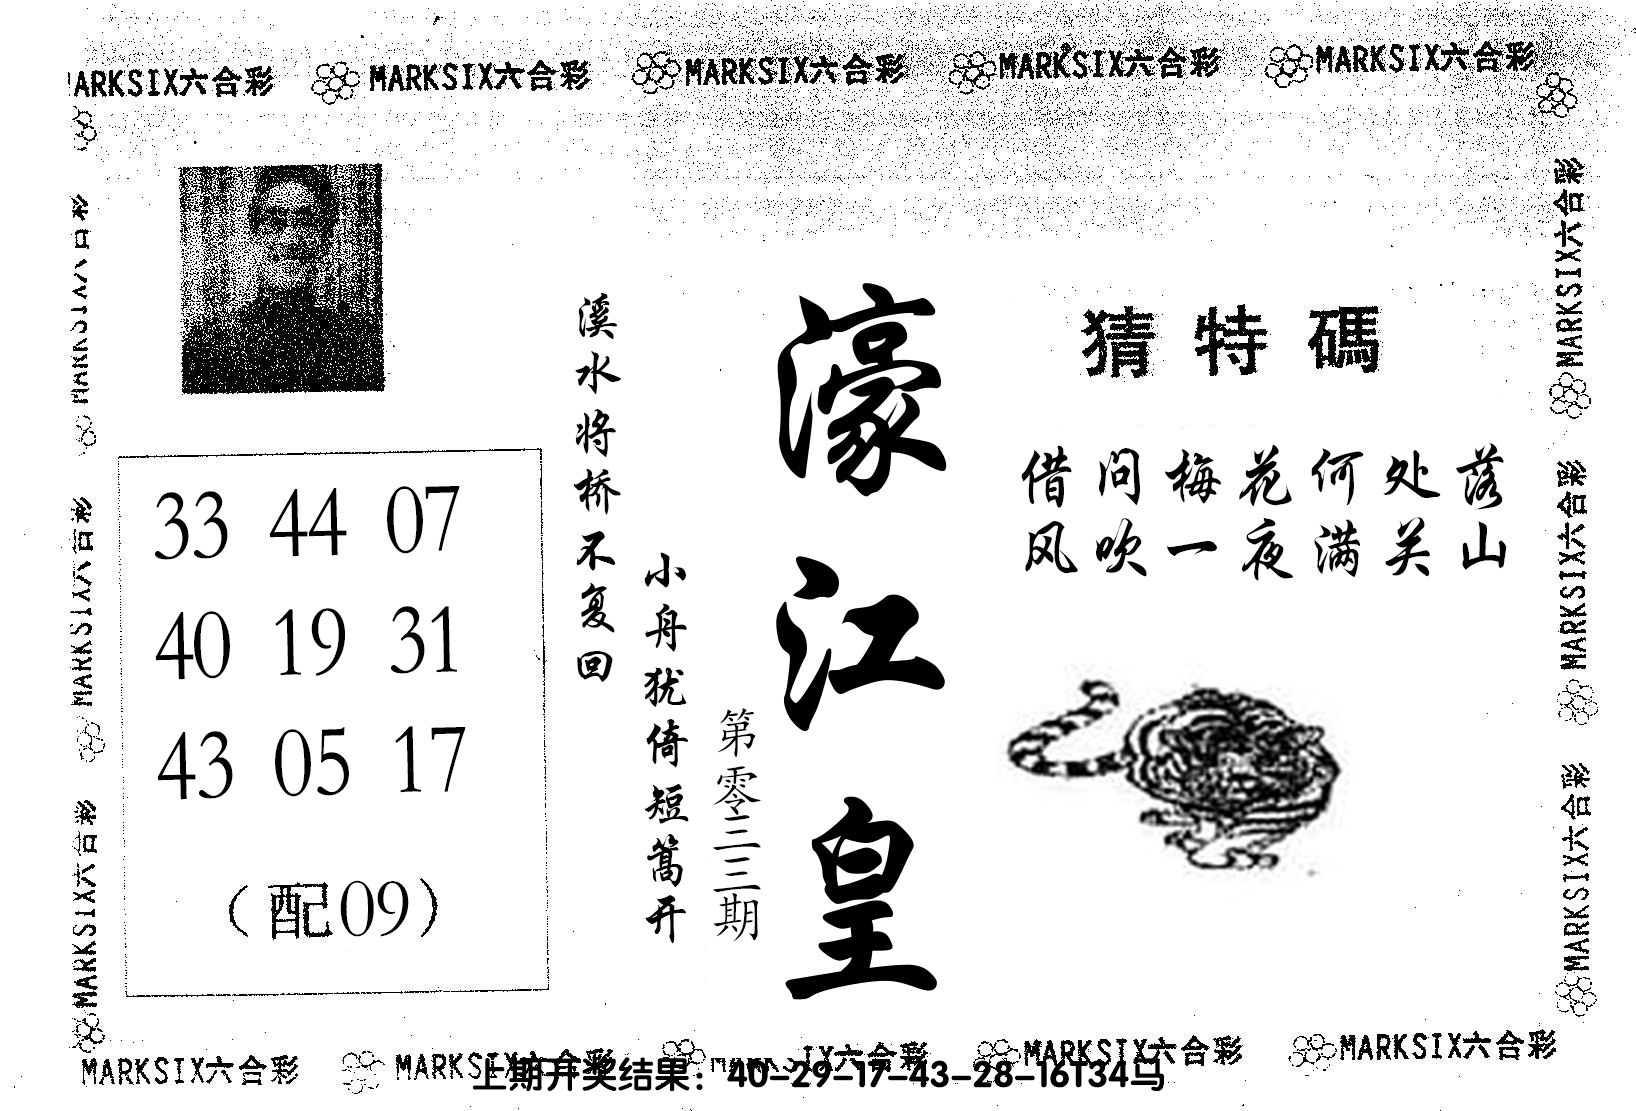 MARKSIX六合彩 MARKSIX六合彩 MARKSIX六合彩 MARKSIX六合彩 MARKSIX六合彩
MARKSIX六合彩
MARKSIX六合彩
MARKSIX六合彩
33 44 07
40 19 31
43 05 17
(配09)
溪水将桥不复回
小舟犹倚短篙开
第零三三期
濠江皇
猜特碼
借问梅花何处落
风吹一夜满关山
MARKSIX六合彩
MARKSIX六合彩
MARKSIX六合彩
MARKSIX六合彩 MARKSIX六合彩 MARKSIX六合彩 MARKSIX六合彩 MARKSIX六合彩
上期开奖结果：40-29-17-43-28-16T34马